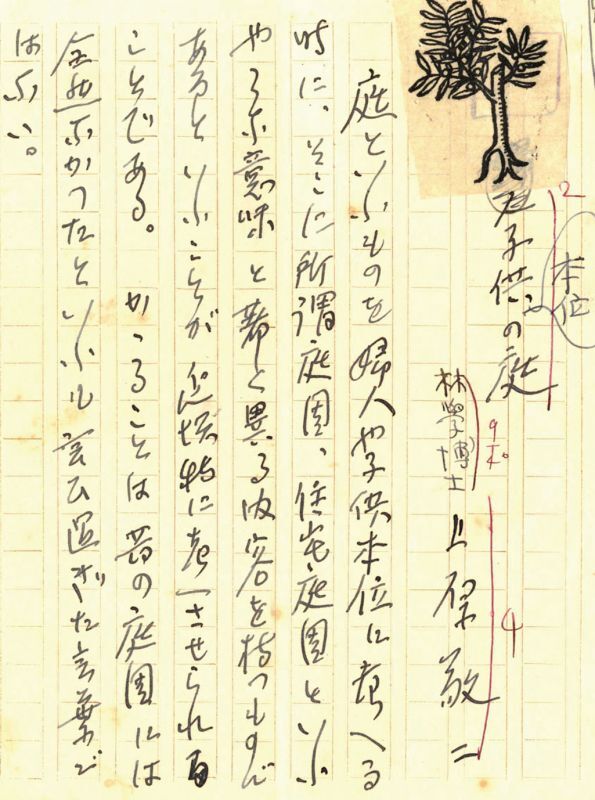 子供の庭
本位
2
林學博士 上原敬二
9ポ
4
庭といふものを婦人や子供本位に考へる
時に、そこに所謂庭園、住宅庭園といふ
やうな意味と異る内容を持つものが
あるといふことが近頃特に考へさせられる
ことである。 かゝることは昔の庭園には
全然なかつたといふも言ひ過ぎた言葉で
はない。